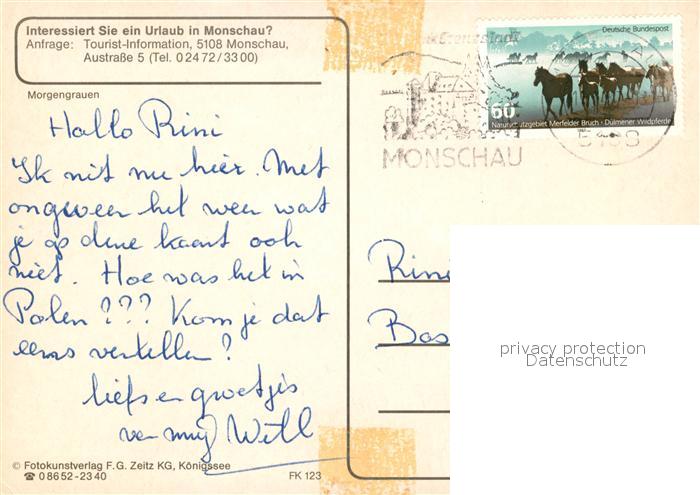 Interessiert Sie ein Urlaub in Monschau?
Anfrage: Tourist-Information, 5108 Monschau,
Austraße 5 (Tel. 0 24 72 / 33 00)
Morgengrauen
Hallo Rini
Ik zit nu hier. Met
ongeveer het weer wat
je op deze kaart ook
ziet. Hoe was het in
Polen ??? Kom je dat
eens vertellen?
liefs en groetjes
van mij Will
© Fotokunstverlag F.G. Zeitz KG, Königssee
☎ 0 86 52 - 23 40
FK 123
Deutsche Bundespost
60
Naturschutzgebiet Merfelder Bruch · Dülmener Wildpferde
MONSCHAU
Rini
Bos
privacy protection
Datenschutz